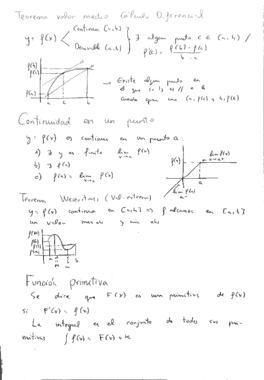 Teorema valor medio Cálculo Diferencial
y = f(x) Continua [a,b] ∃ algun punto c ∈ (a,b) /
Derivable (a,b) f'(c) = f(b) - f(a) / b - a
f(b)
f(c)
f(a)
a c b
→ Existe algun punto en
el que la es // a la
cuerda que une (a, f(a)) y b, f(b)
Continuidad en un punto
y = f(x) es continua en un punto a:
a) ∃ y es finito lim x→a f(x)
b) ∃ f(a)
c) f(a) = lim x→a f(x)
lim f(x)
f(a)
a
lim f(x)
Teorema Weierstrass
y = f(x) continua en [a,b] ⇒ f alcanza en [a,b]
un valor max abs y min abs
f(M)
f(a)
f(b)
f(m)
a M m b
Función primitiva
Se dice que F(x) es una primitiva de f(x)
si F'(x) = f(x)
La integral es el conjunto de todas sus pri-
mitivas ∫ f(x) = F(x) + k